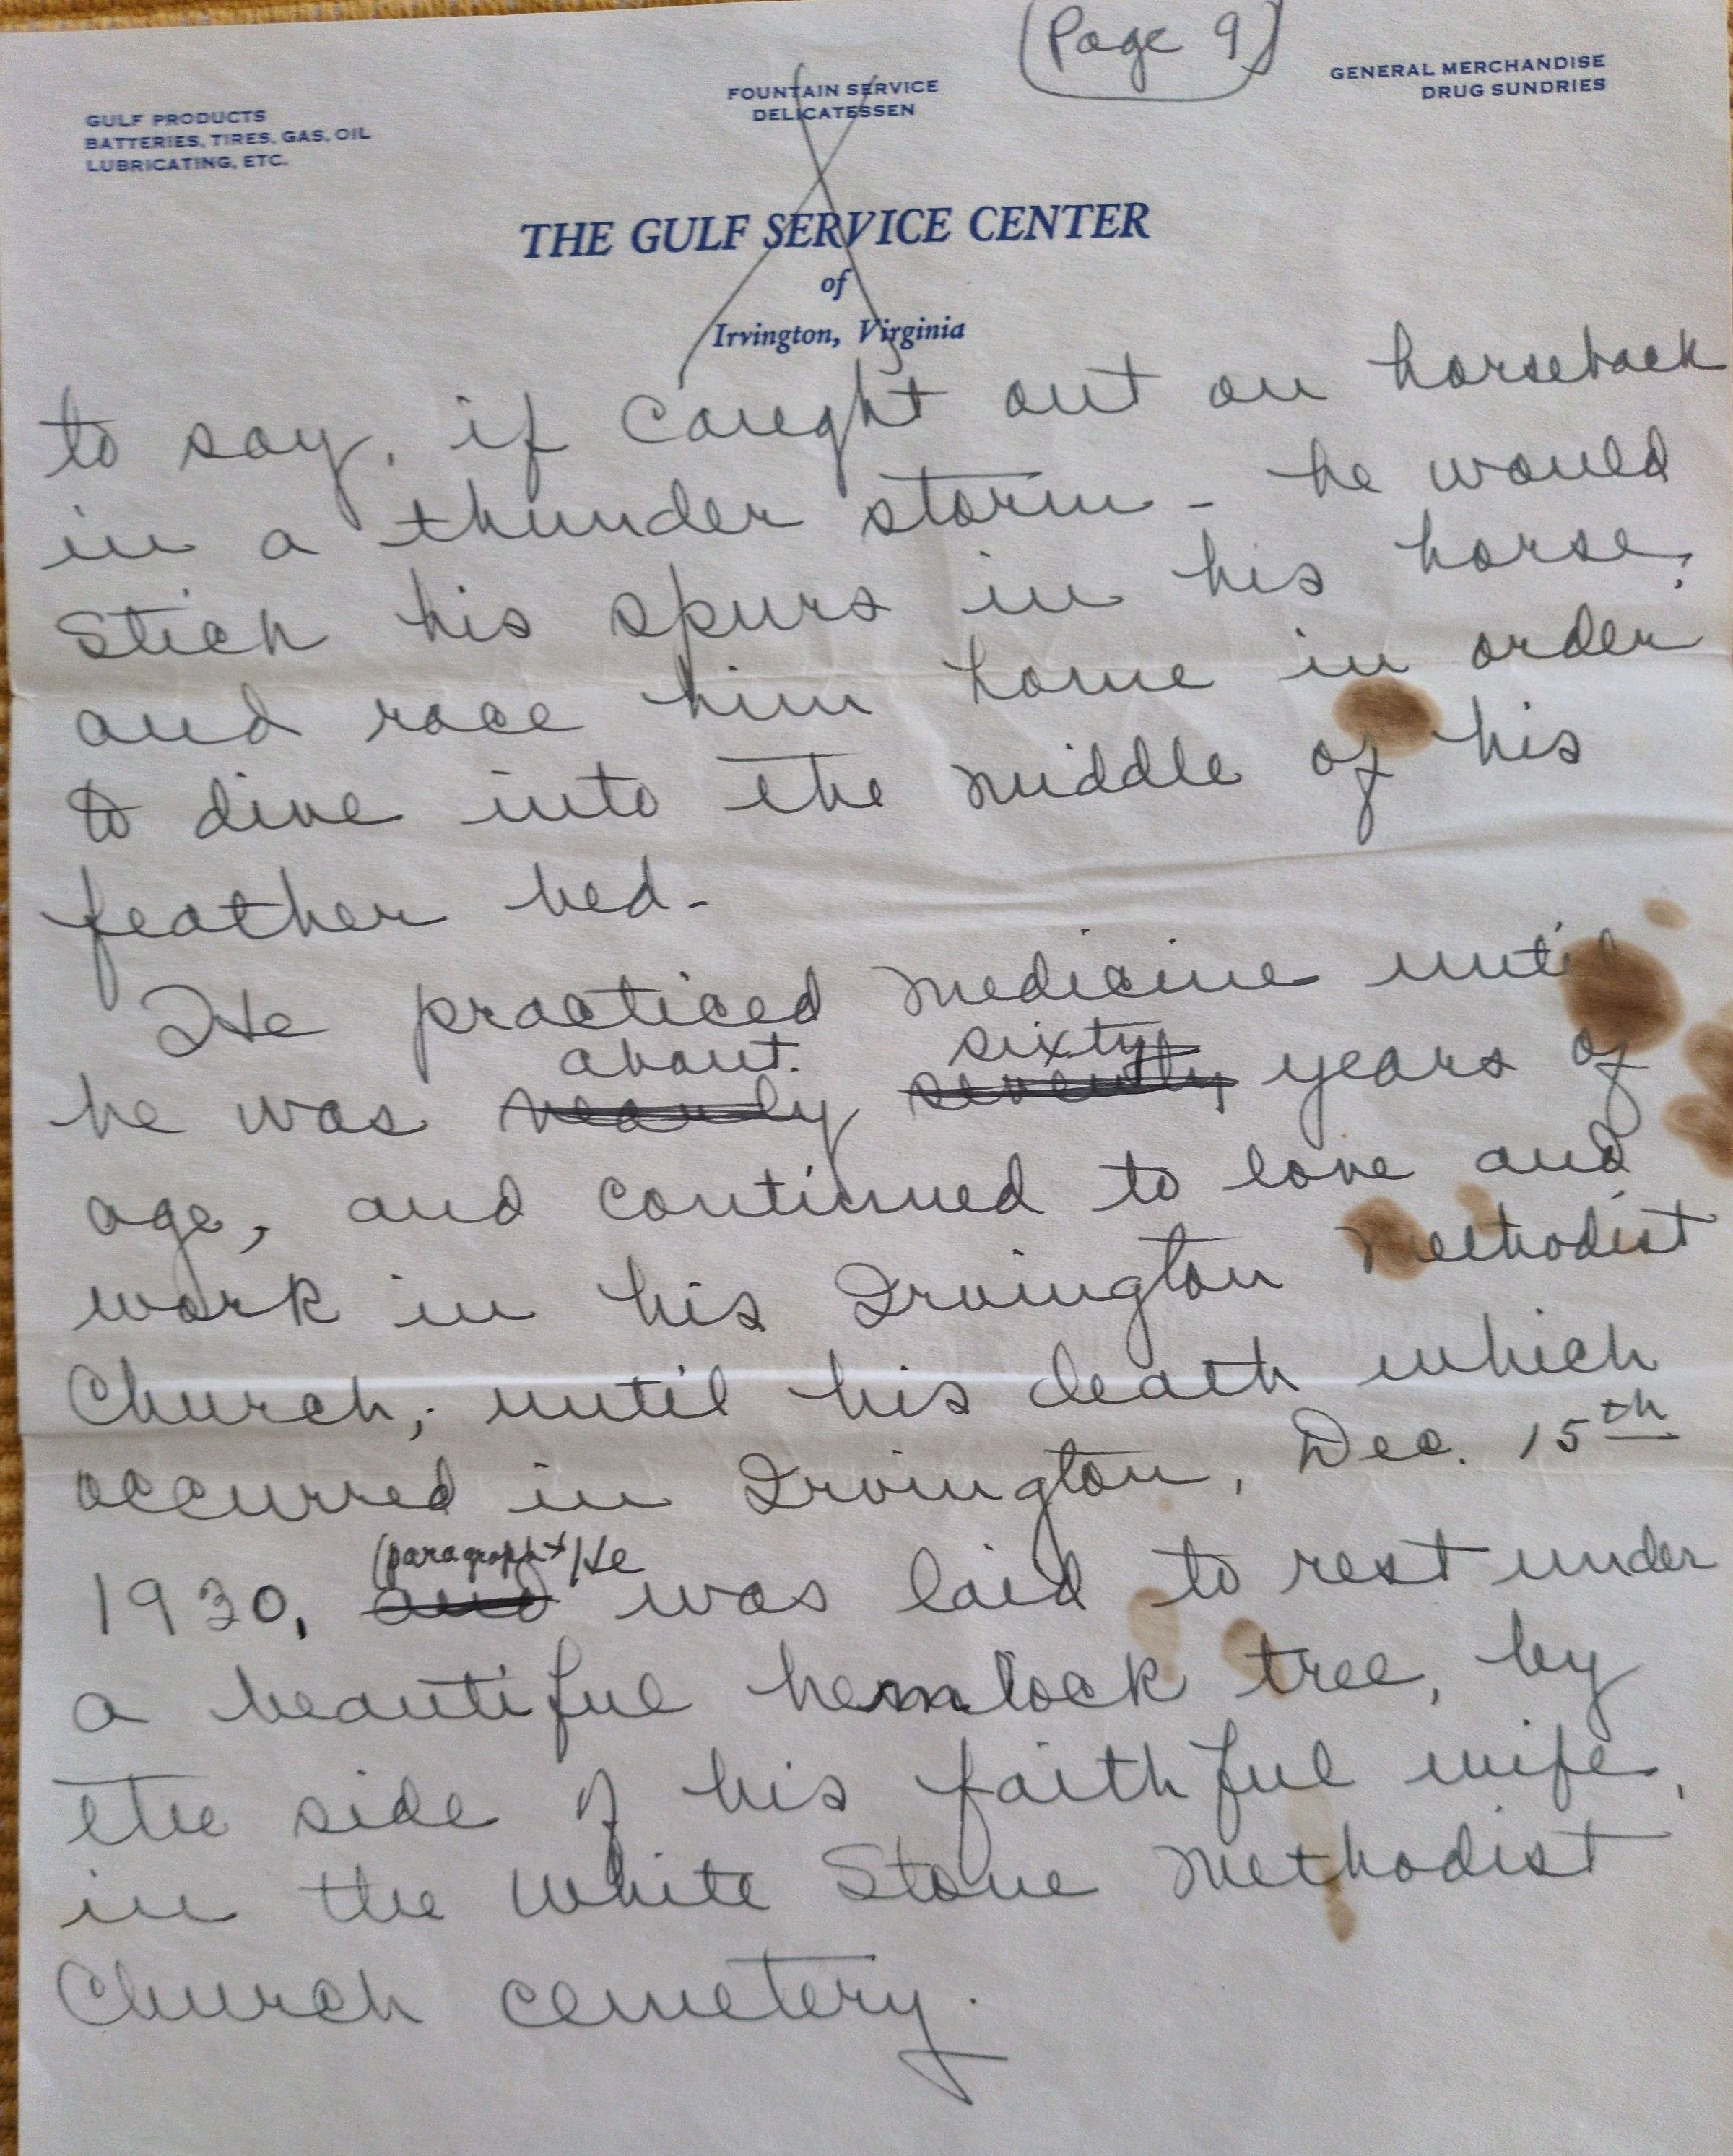 (Page 9)
GULF PRODUCTS
BATTERIES, TIRES, GAS, OIL
LUBRICATING, ETC.
FOUNTAIN SERVICE
DELICATESSEN
GENERAL MERCHANDISE
DRUG SUNDRIES
THE GULF SERVICE CENTER
of
Irvington, Virginia
to say, if caught out on horseback
in a thunder storm - he would
stick his spurs in his horse,
and race him home in order
to dive into the middle of his
feather bed-
He practiced medicine until
about sixty
he was nearly seventy years of
age, and continued to love and
work in his Irvington Methodist
Church, until his death which
occurred in Irvington, Dec. 15th
(paragraph) He
1930, and was laid to rest under
a beautiful hemlock tree, by
the side of his faithful wife,
in the White Stone Methodist
Church cemetery.